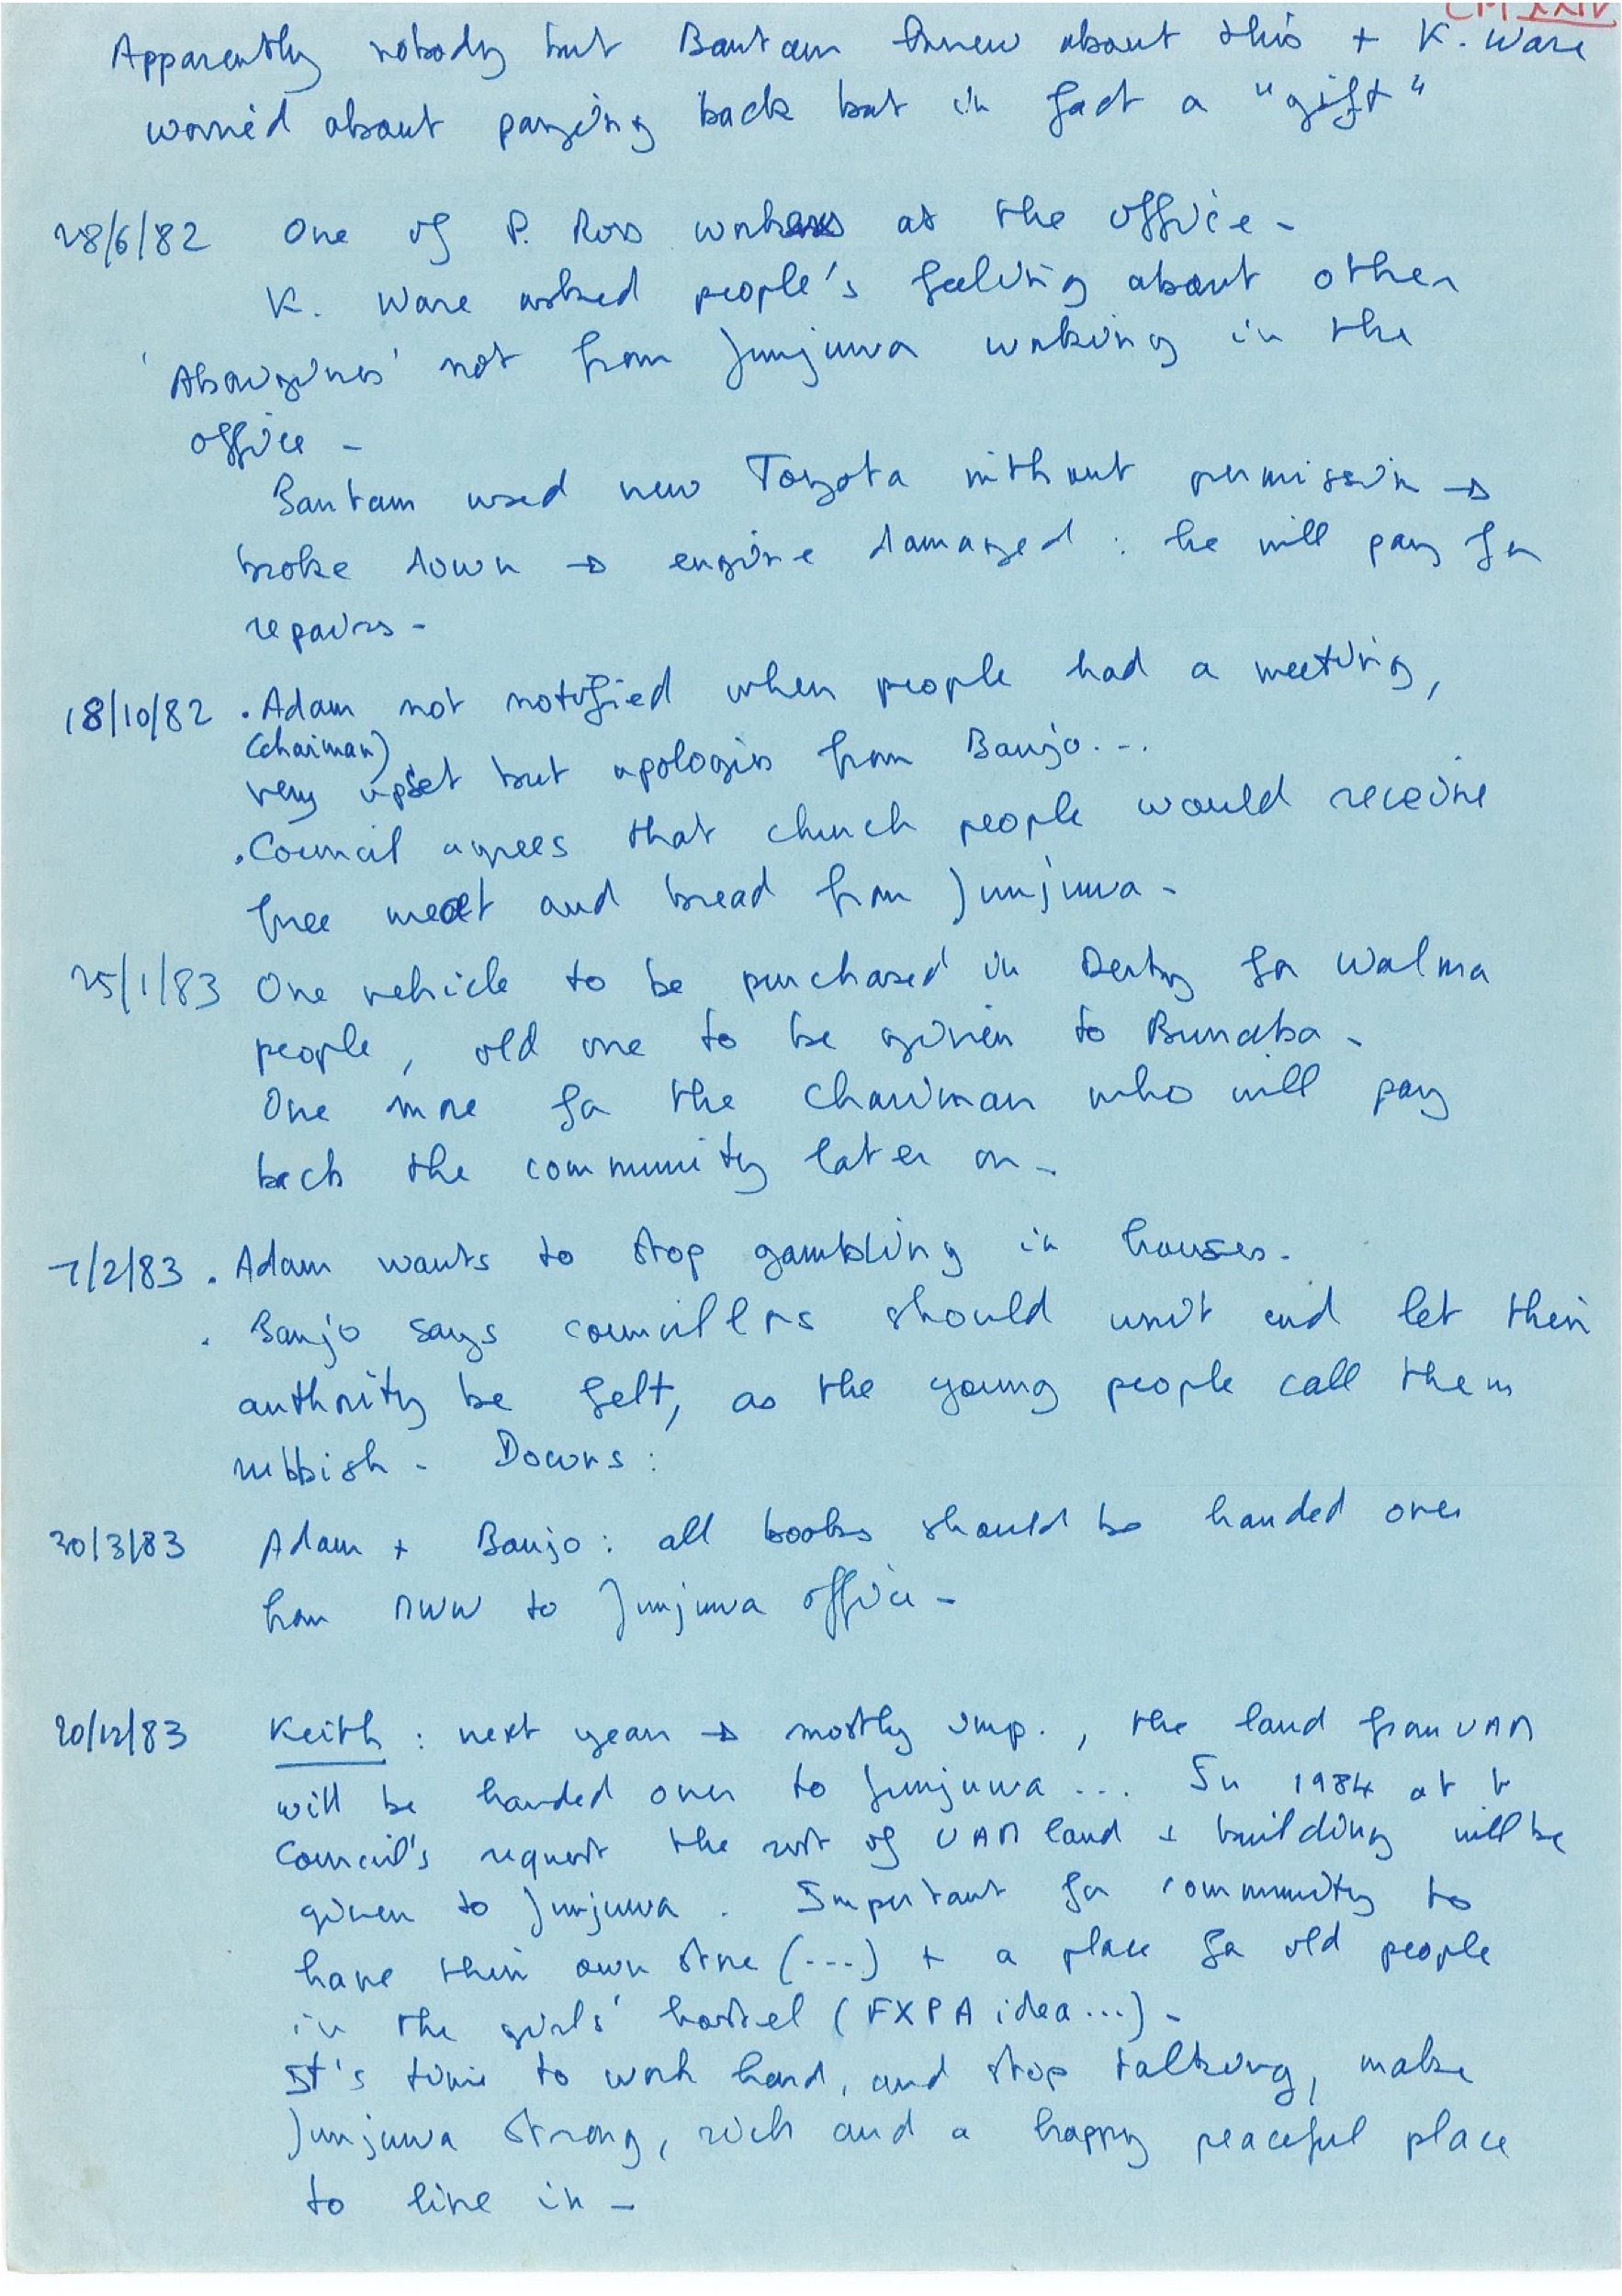 CM XXIV
Apparently nobody but Bantam knew about this + K. Ware
worried about paying back but in fact a "gift"
28/6/82 One of P. Ross workers at the office -
K. Ware asked people's feeling about other
'Aborigines' not from Junjuwa working in the
office -
Bantam used new Toyota without permission →
broke down → engine damaged : he will pay for
repairs -
18/10/82 . Adam not notified when people had a meeting,
(chairman)
very upset but apologies from Banjo...
. Council agrees that church people would receive
free meat and bread from Junjuwa -
25/1/83 One vehicle to be purchased in Derby for Walma
people, old one to be given to Bunaba -
One more for the chairman who will pay
back the community later on -
7/2/83 . Adam wants to stop gambling in houses -
. Banjo says councillors should unit and let their
authority be felt, as the young people call them
rubbish - Downs :
30/3/83 Adam + Banjo : all books should be handed over
from MWW to Junjuwa office -
20/12/83 Keith : next year → mostly imp. , the land from UAM
will be handed over to Junjuwa ... In 1984 at t
Council's request the rest of UAM land + building will be
given to Junjuwa . Important for community to
have their own store (...) + a place for old people
in the girls' hostel (FXPA idea...) -
It's time to work hard, and stop talking, make
Junjuwa strong, rich and a happy peaceful place
to live in -